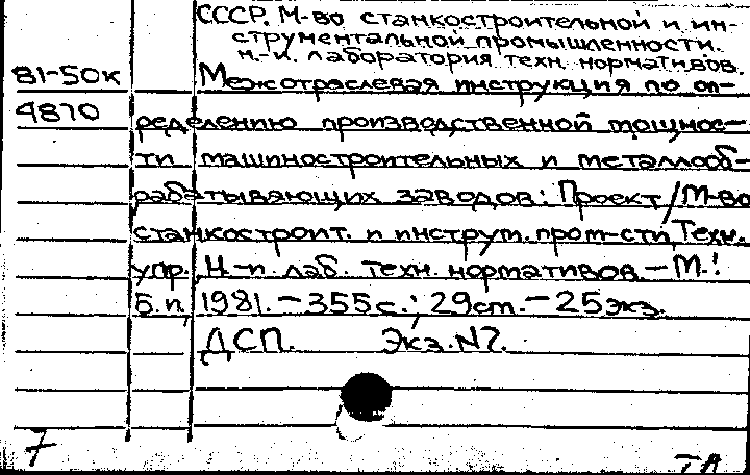 СССР. М-во станкостроительной и ин-
струментальной промышленности.
Н.-и. лаборатория техн. нормативов.
81-50к Межотраслевая инструкция по оп-
4870 ределению производственной мощнос-
ти машиностроительных и металлооб-
рабатывающих заводов: Проект/М-во
станкостроит. и инструт. пром-сти, Техн.
упр. Н.-и. лаб. техн. нормативов – М.:
Б.и., 1981. – 355с.; 29см. – 25экз.
ДСП. Экз. N7.
7 ТА